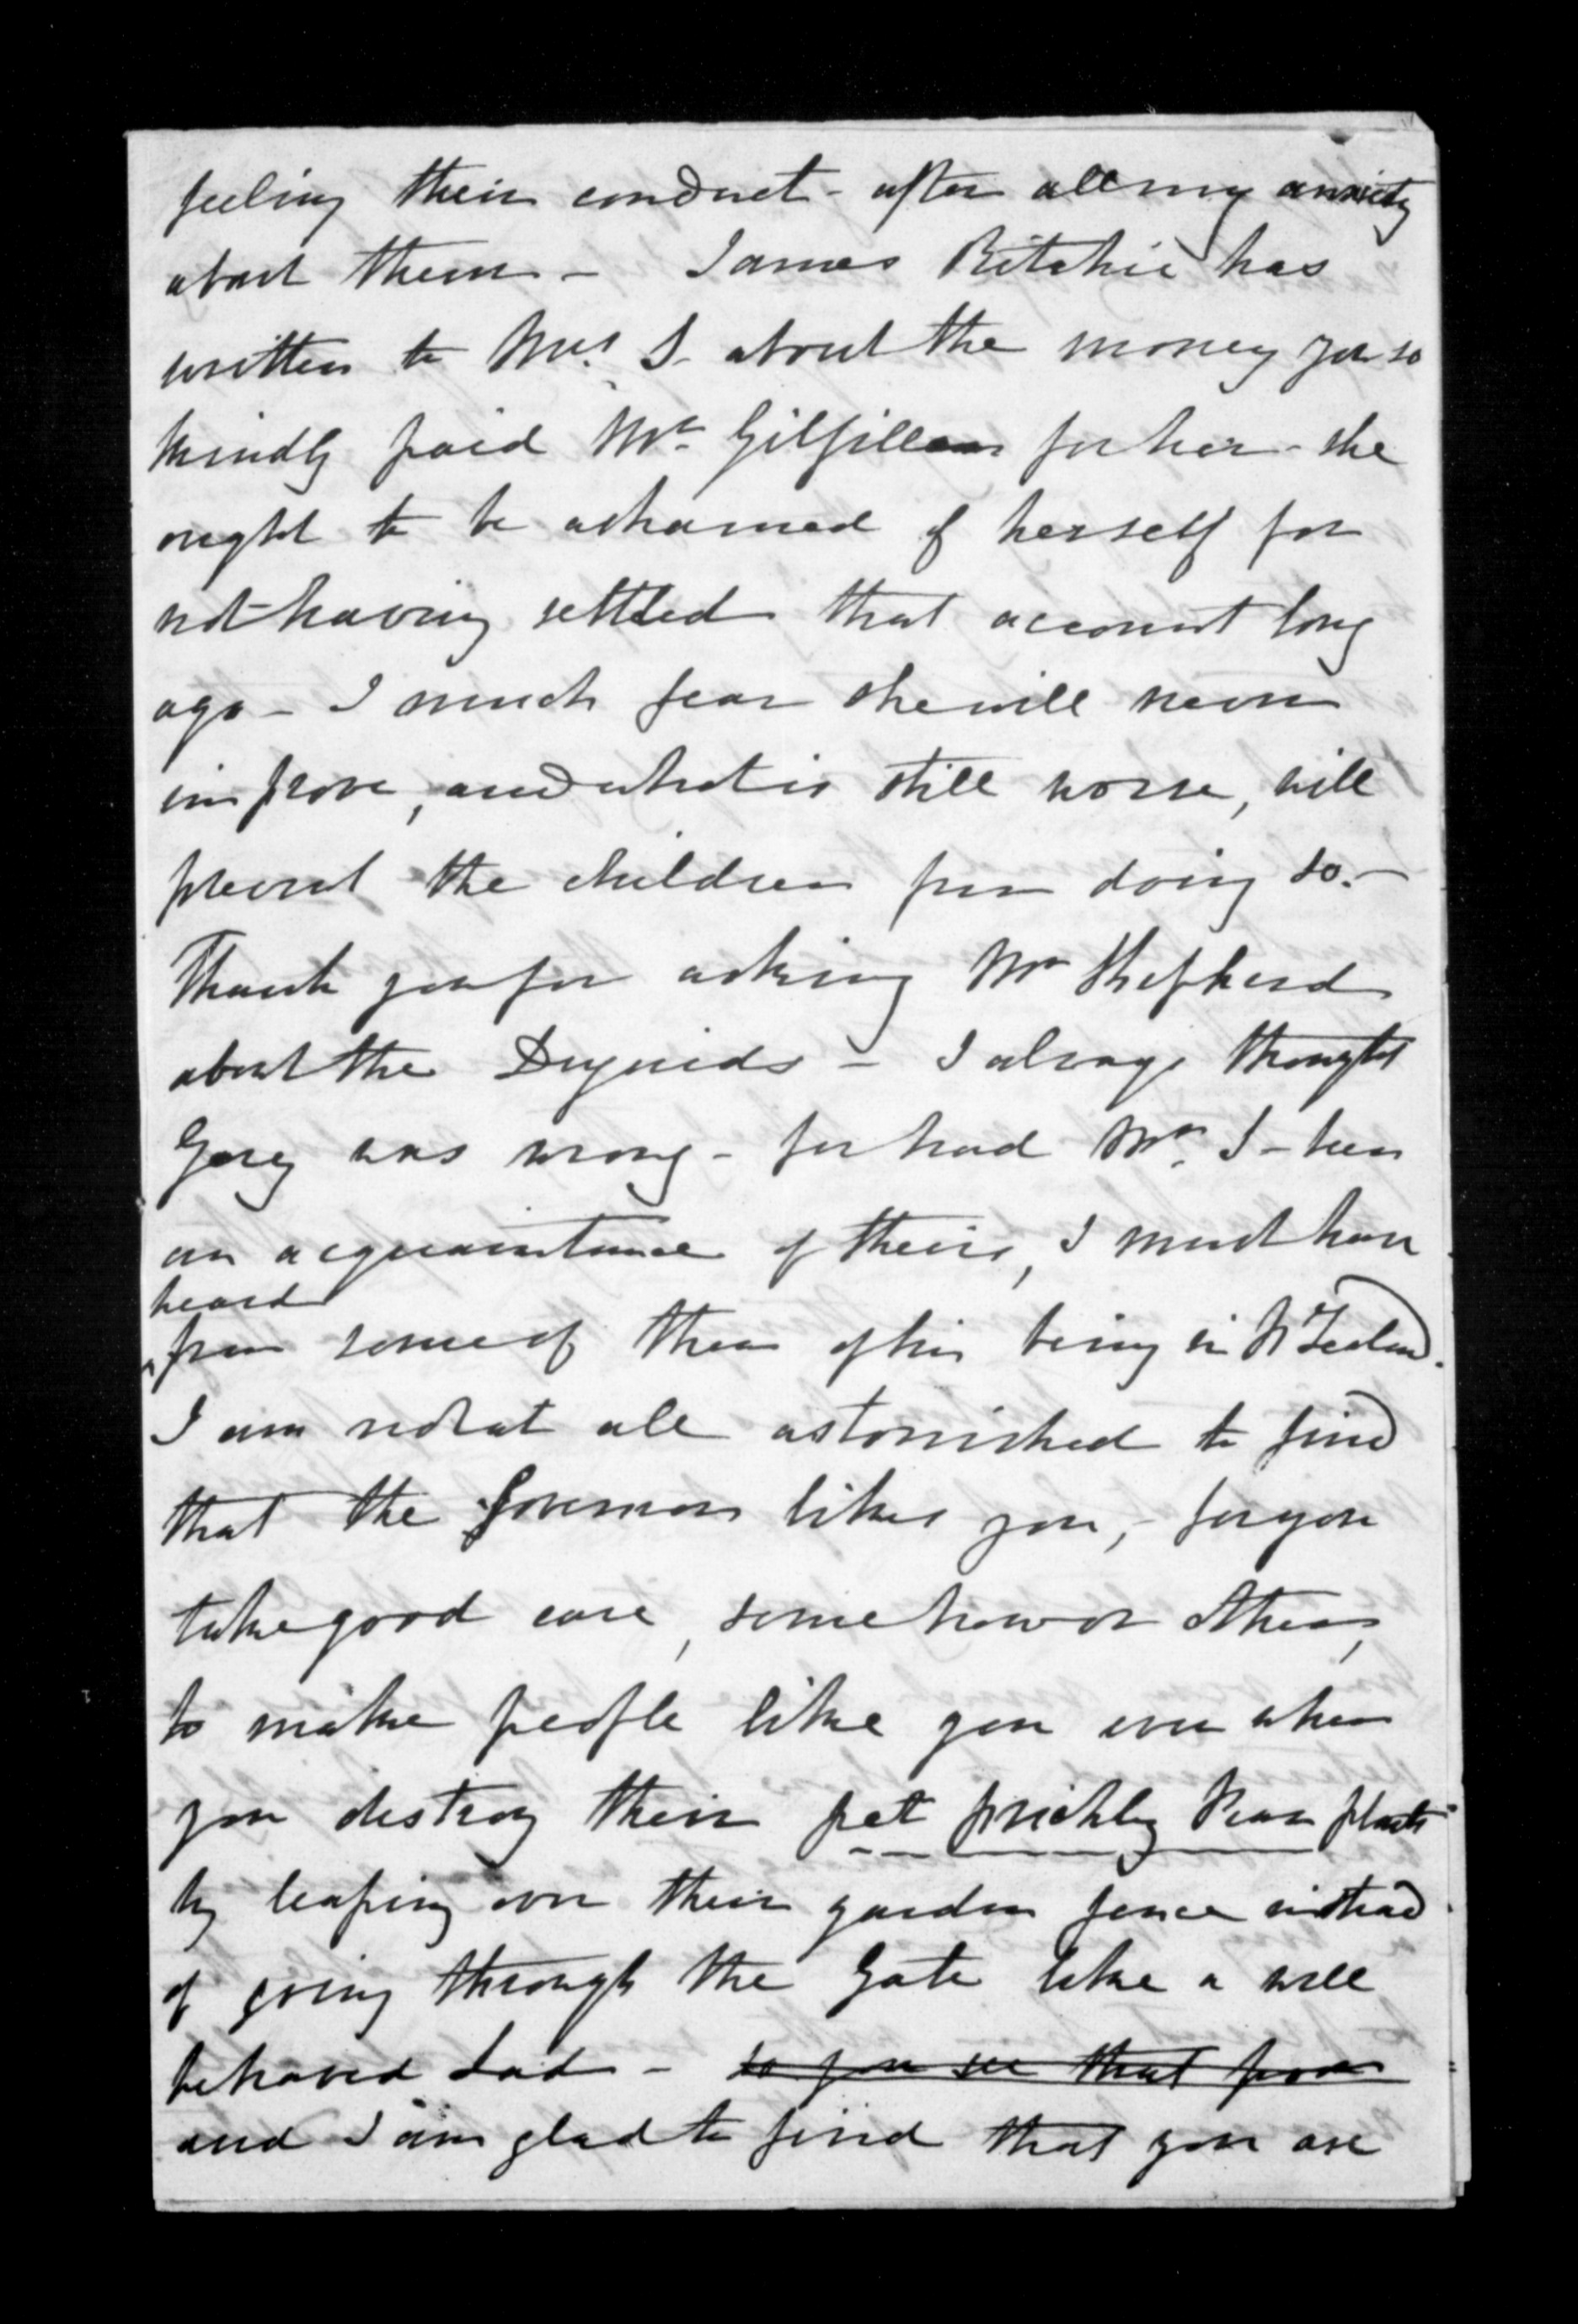 feeling their conduct - after all my anxiety
about them - James Ritchie has
written to Mrs. S- about the money you so
kindly paid Mr. Gilfillan for her - she
ought to be ashamed of herself for
not having settled that account long
ago - I much fear she will never
improve, and what is still worse, will
prevent the children from doing so. -
Thank you for asking Mr Shepherd
about the Duguids - I always thought
was wrong - for had Mr. S- been
an acquaintance of theirs, I must have
heard
from some of them of his being in N Zealand.
I am not at all astonished to find
that the Governor likes you, - for you
take good care, somehow or other,
to make people like you even when
you destroy their pet prickly Pear plants
by leaping over their garden fence instead
of going through the Gate like a well
behaved Lad - so you see that poor
and I am glad to find that you are